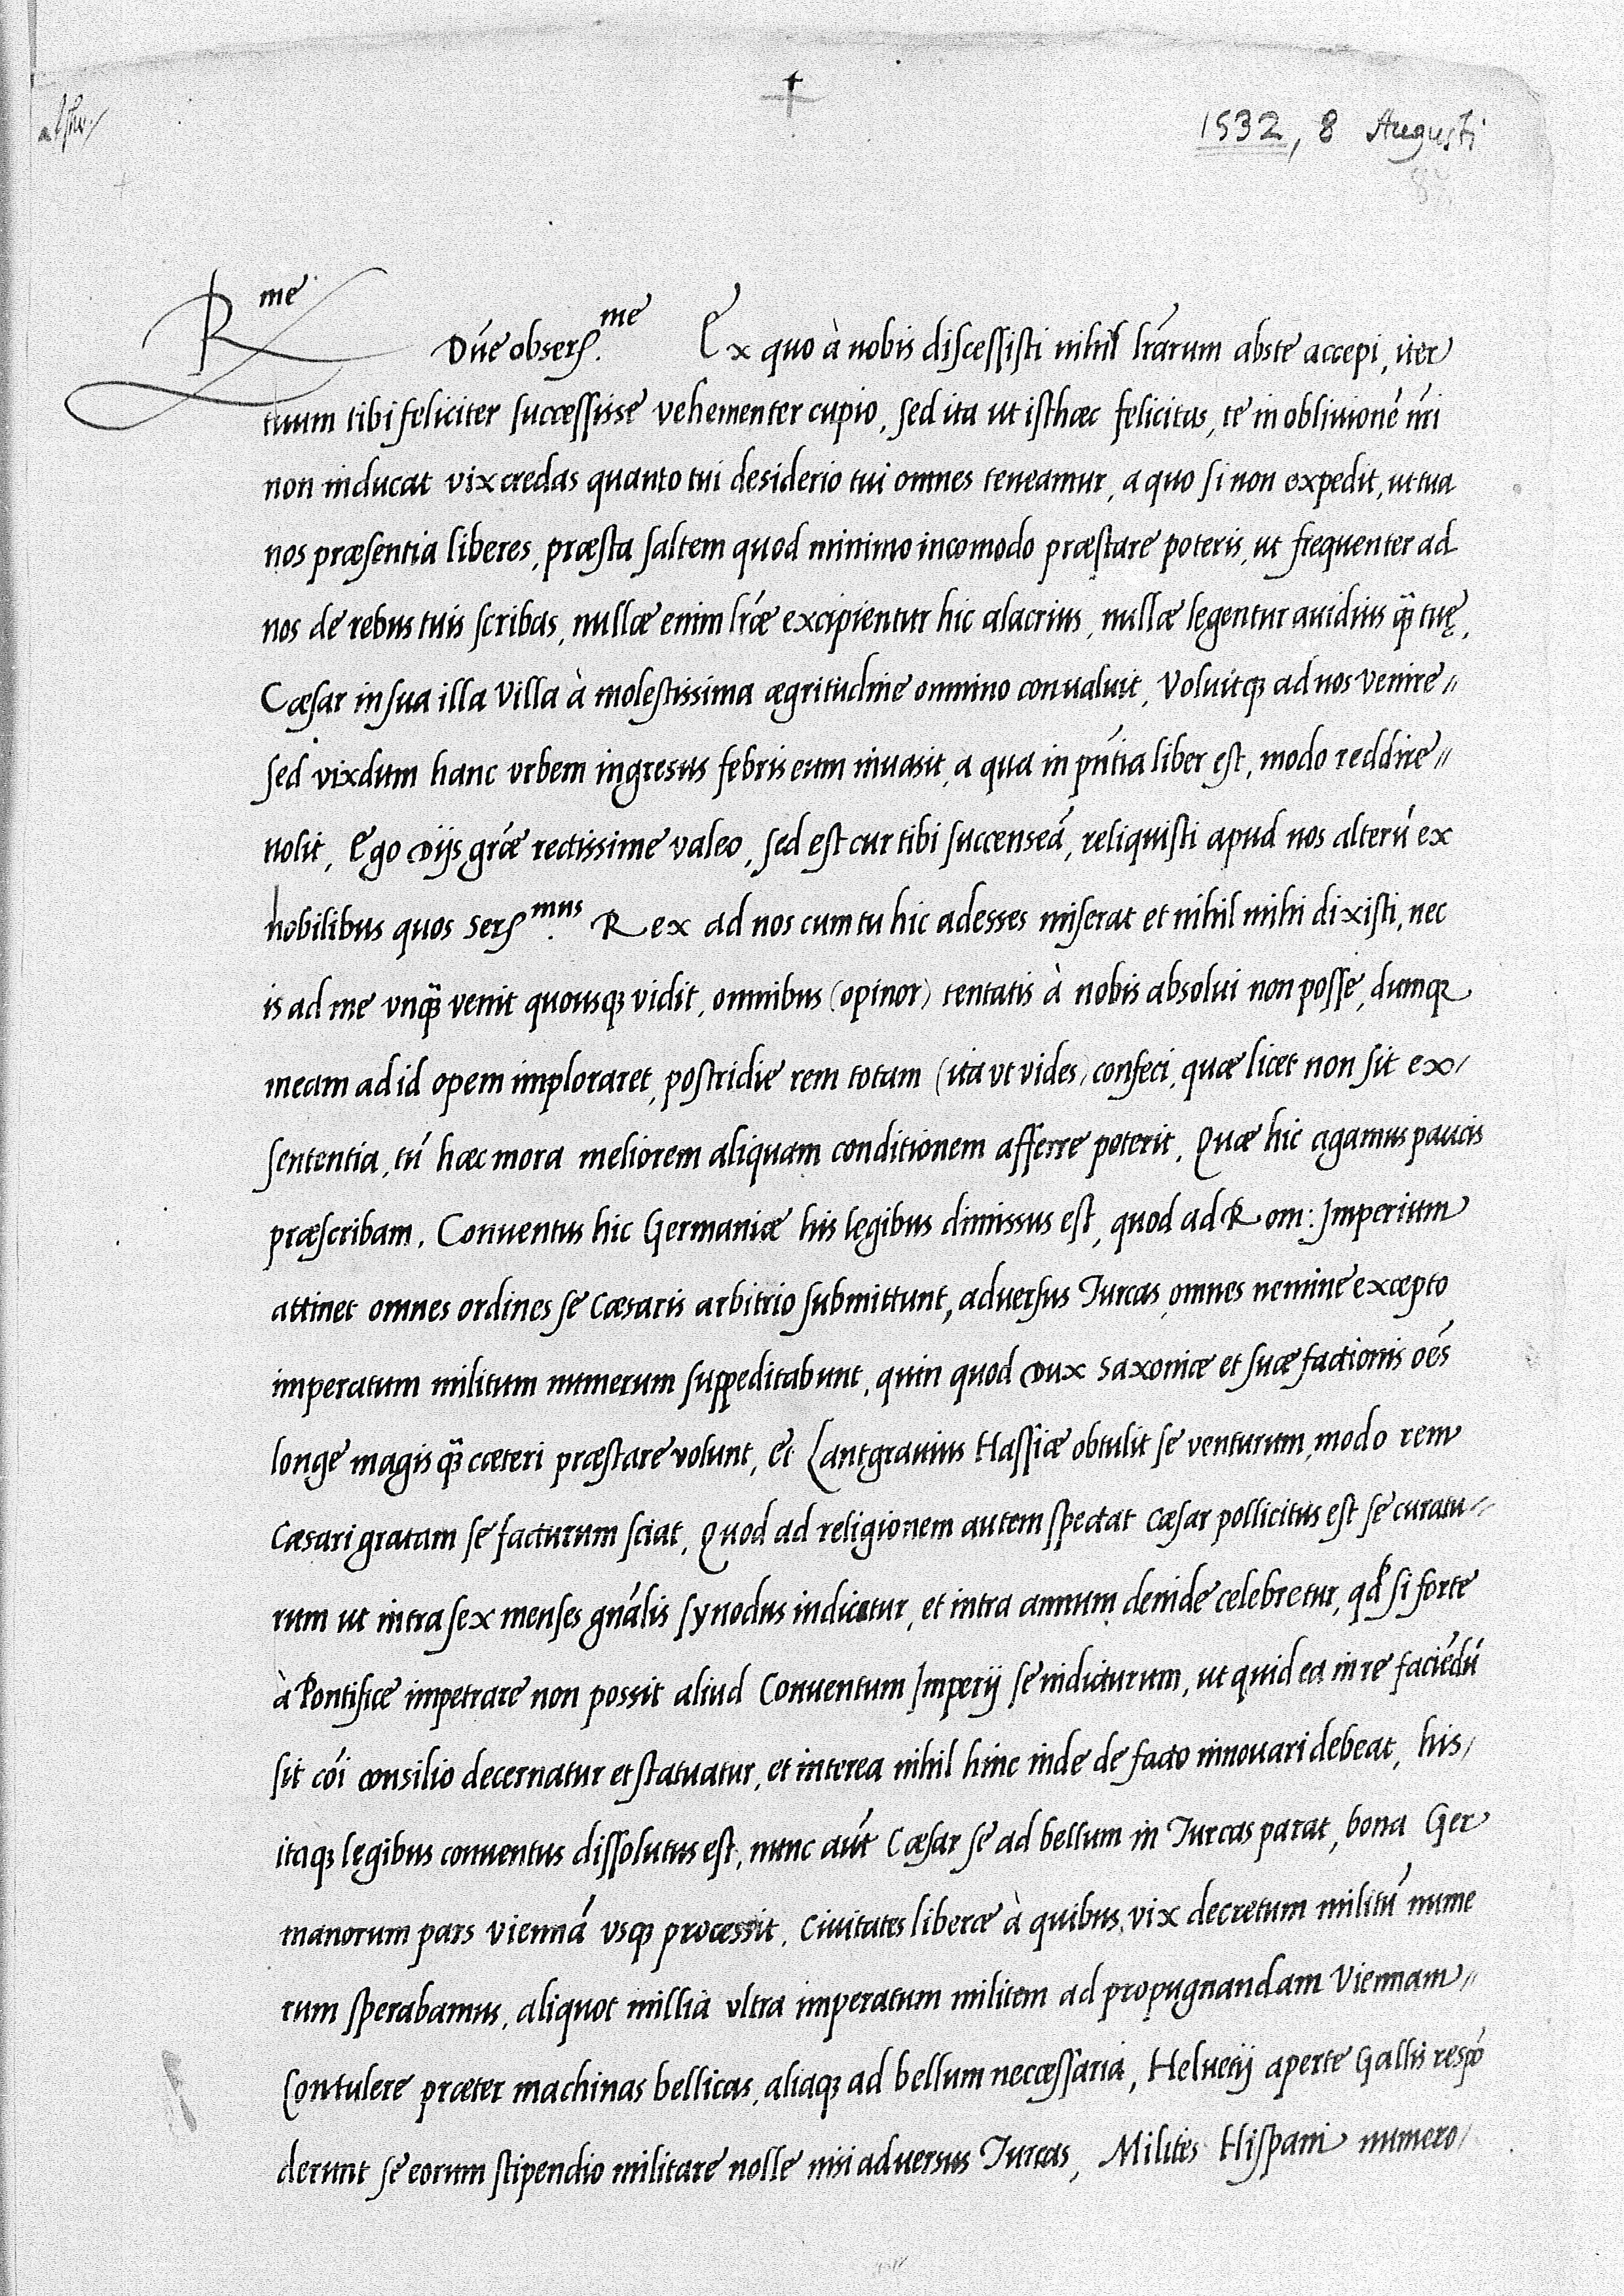 1532, 8 Augusti
R me
Dn̄e obser. me Ex quo à nobis discessisti nihil lr̄arum abste accepi, iter
tuum tibi feliciter successisse vehementer cupio, sed ita ut isthæc felicitas, te in obliuionē nr̄i
non inducat vix credas quanto tui desiderio tui omnes teneamur, a quo si non expedit, ut tua
nos præsentia liberes, præsta saltem quod minimo incomodo præstare poteris, ut frequenter ad
nos de rebus tuis scribas, nullæ enim lr̄æ excipientur hic alacrius, nullæ legentur auidius q̄ꝫ tuę,
Cæsar in sua illa Villa à molestissima ægritudine omnino conualuit, Voluitqꝫ ad nos venire
sed vixdum hanc vrbem ingressus febris eum inuasit, a qua in pn̄tia liber est, modo reddire
nolit, Ego Dijs gr̄æ rectissime valeo, sed est cur tibi succenseā, reliquisti apud nos alterū ex
nobilibus quos Ser.mus Rex ad nos cum tu hic adesses miserat et nihil mihi dixisti, nec
is ad me vnq̄ꝫ venit quousqꝫ vidit, omnibus (opinor) tentatis à nobis absolui non posse, dumqꝫ
meam ad id opem imploraret, postridie rem totam (ita vt vides) confeci, quæ licet non sit ex
sententia, tn̄ hæc mora meliorem aliquam conditionem afferre poterit, Quæ hic agamus paucis
præscribam. Conuentus hic Germaniæ his legibus dimissus est, quod ad Rom: Imperium
attinet omnes ordines se Cæsaris arbitrio submittunt, aduersus Turcas omnes nemine excepto
imperatum militum numerum suppeditabunt, quin quod Dux Saxoniæ et suæ factionis oēs
longe magis q̄ꝫ cæteri præstare volunt, et Lantgrauius Hassiæ obtulit se venturum, modo rem
Cæsari gratam se facturum sciat, Quod ad religionem autem spectat Cæsar pollicitus est se curatu-
rum ut intra sex menses gn̄alis synodus indicatur, et intra annum deinde celebretur, qd̄ si forte
à Pontifice impetrare non possit aliud Conuentum Imperij se indicturum, ut quid ea in re faciēdū
sit cōi consilio decernatur et statuatur, et interea nihil hinc inde de facto innouari debeat, his
itaqꝫ legibus conuentus dissolutus est, nunc aūt Cæsar se ad bellum in Turcas parat, bona Ger
manorum pars viennā vsqꝫ processit, Ciuitates liberæ à quibus vix decretum militū nume
rum sperabamus, aliquot millia vltra imperatum militem ad propugnandam Viennam
Contulere præter machinas bellicas, aliaqꝫ ad bellum necæssaria, Heluetij aperte Gallis respō
derunt se eorum stipendio militare nolle nisi aduersus Turcas, Milites Hispani numero